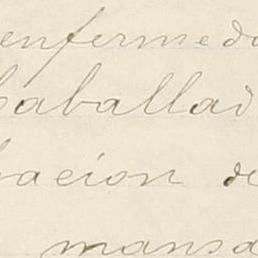 enfermeda
caballad
nacion de
mansa